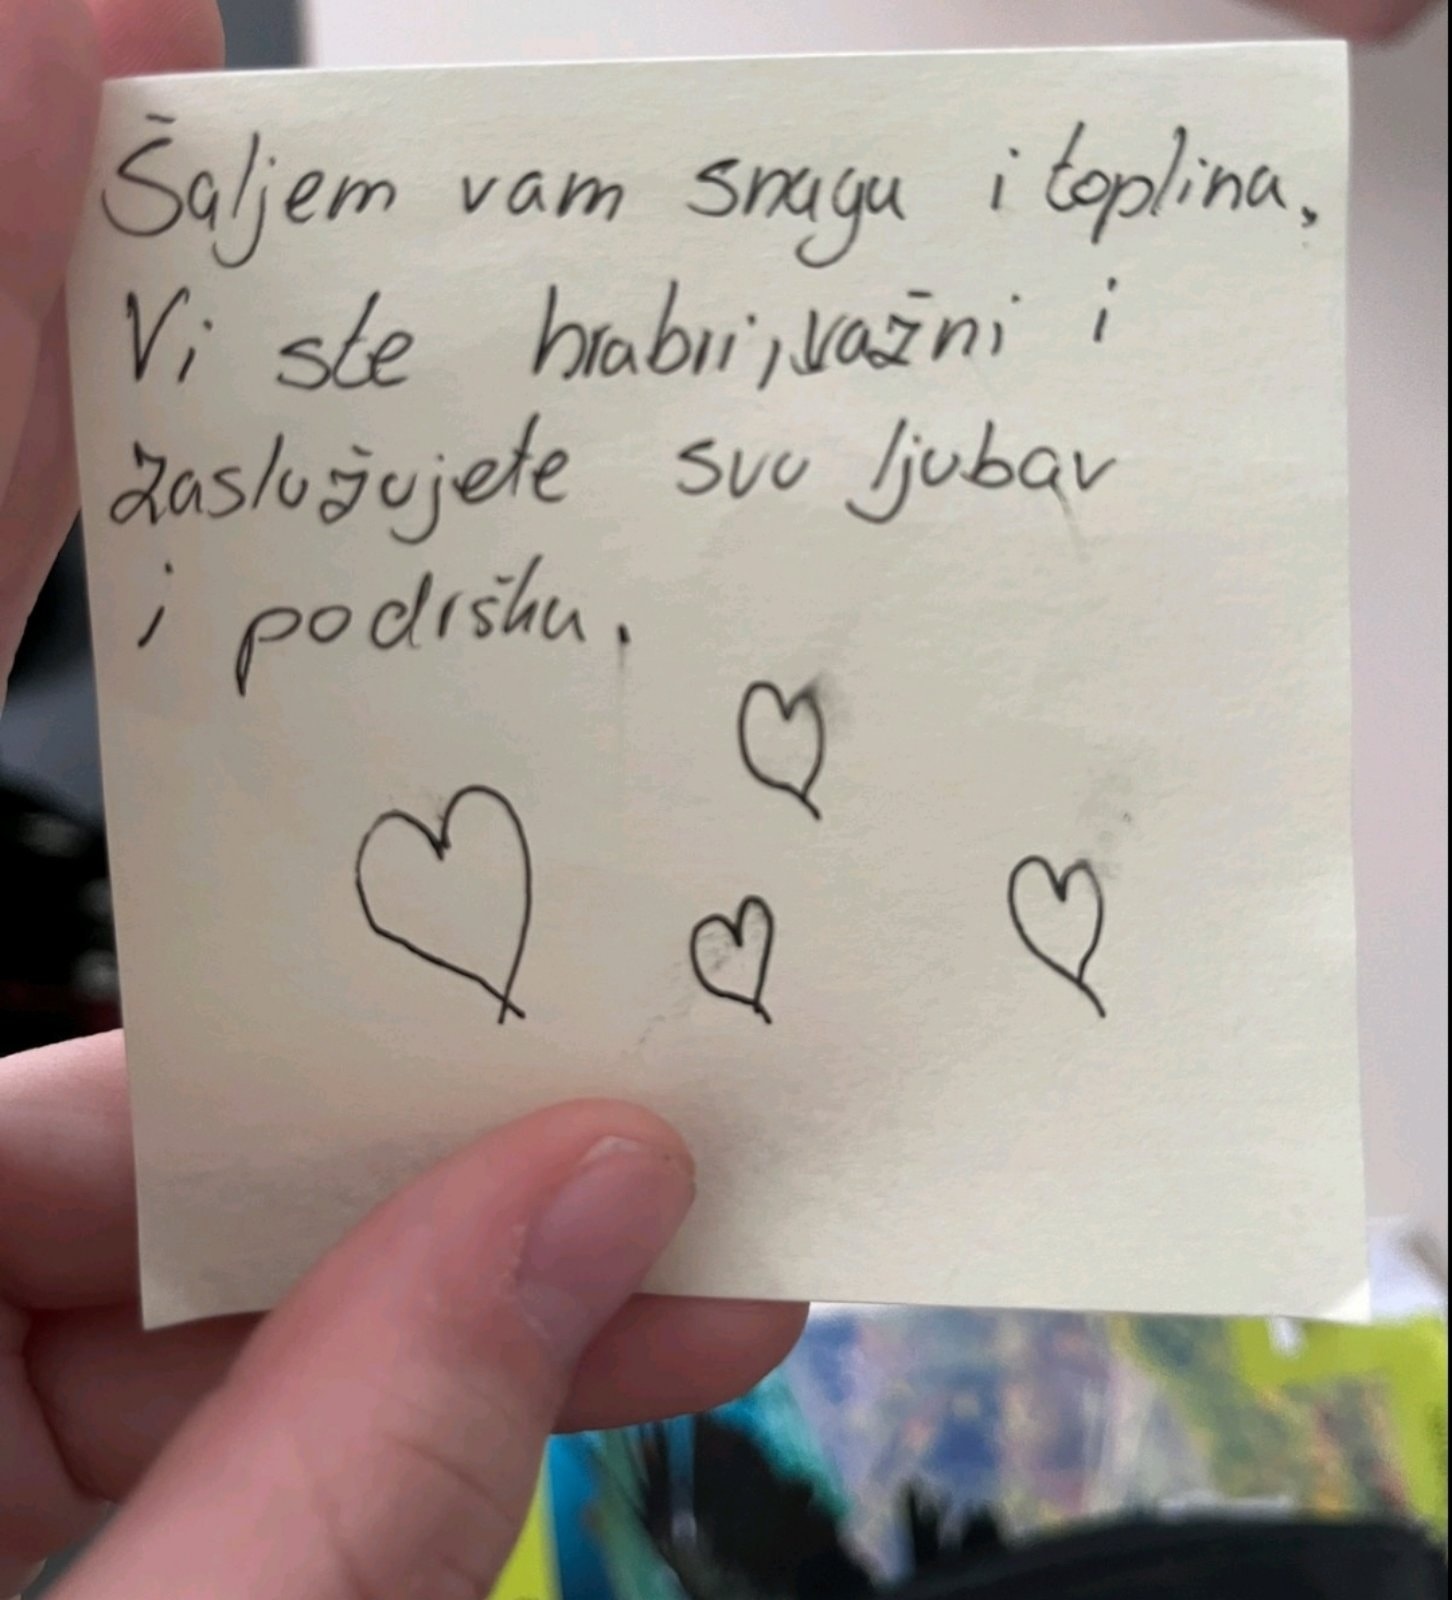 Šaljem vam snagu i toplina.
Vi ste hrabri, važni i
zaslužujete svu ljubav
i podršku.